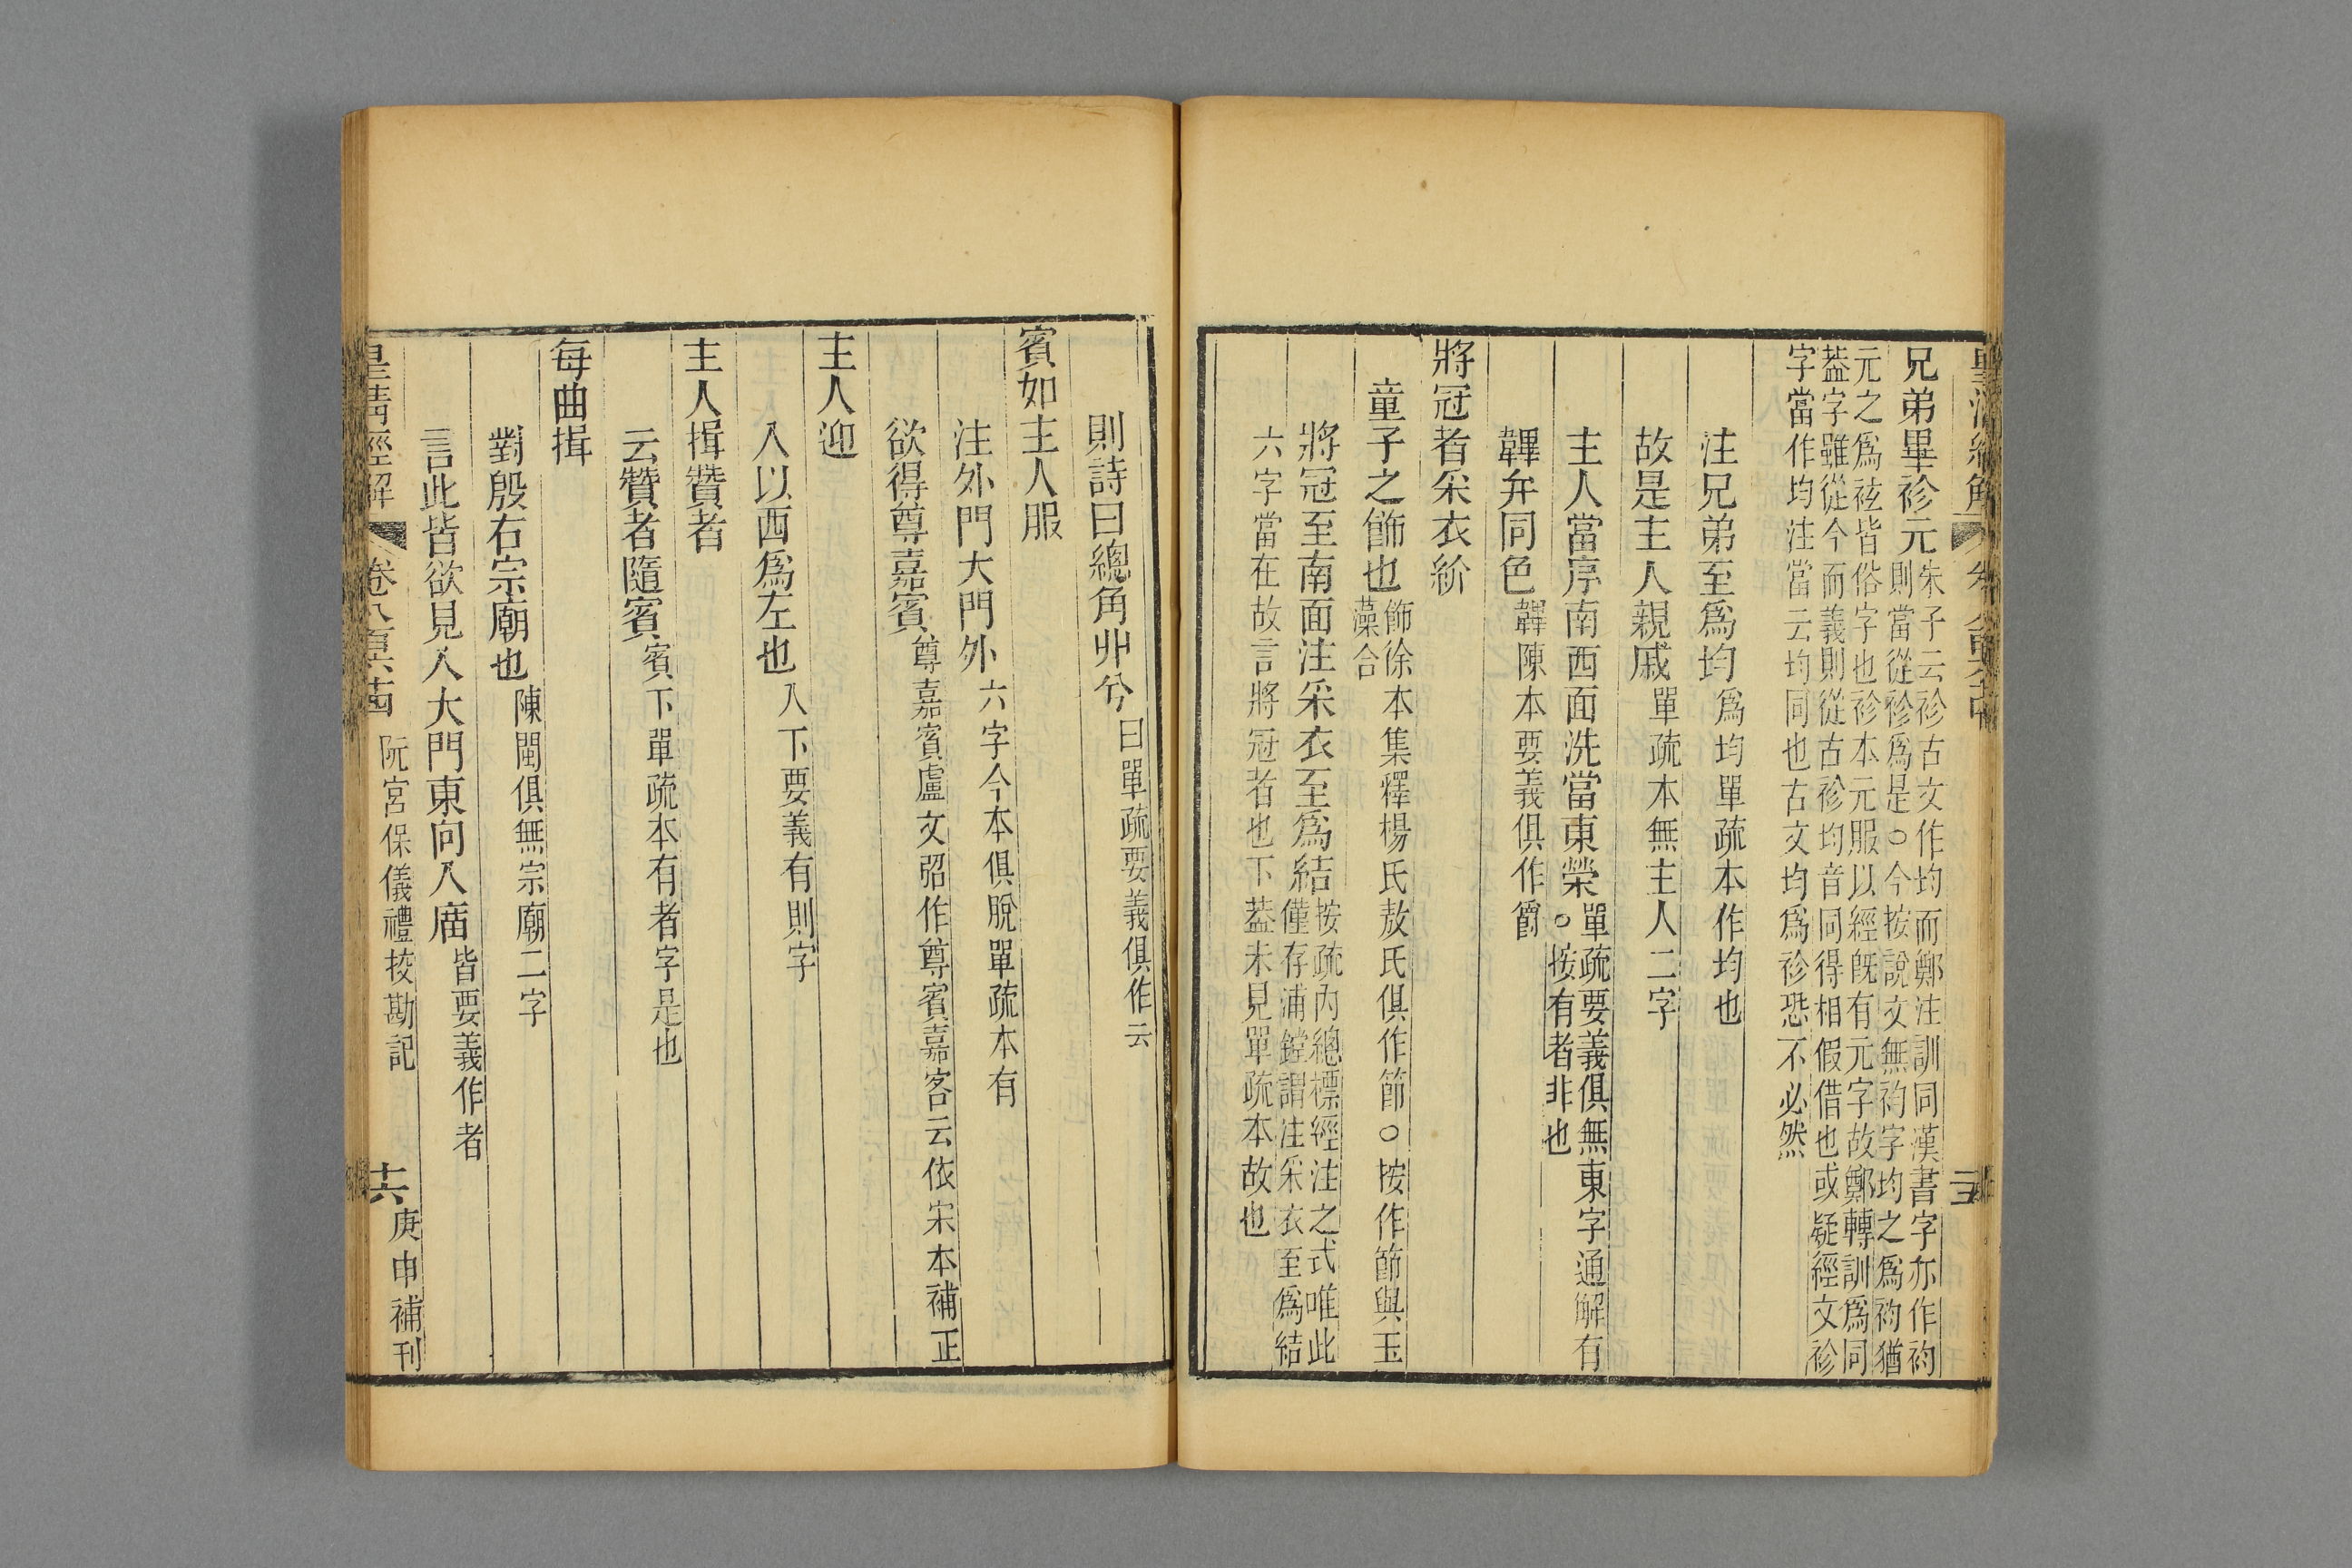 兄弟畢袗元朱子云袗古文作均而鄭注訓同漢書字亦作袀
則當從袗爲是○今按說文無袀字均之爲袀猶
元之爲袨皆俗字也袗本元服以經旣有元字故鄭轉訓爲同
葢字雖從今而義則從古袗均音同得相假借也或疑經文袗
字當作均注當云均同也古文均爲袗恐不必然
注兄弟至爲均爲均單疏本作均也
故是主人親戚單疏本無主人二字
主人當序南西面洗當東榮單疏要義俱無東字通解有
○按有者非也
韠弁同色韠陳本要義俱作爵
將冠者采衣紒
童子之飾也飾徐本集釋楊氏敖氏俱作節○按作節與玉
藻合
將冠至南面注采衣至爲結按疏內總標經注之式唯此
僅存浦鏜謂注采衣至爲結
六字當在故言將冠者也下葢未見單疏本故也
則詩曰總角丱兮曰單疏要義俱作云
賓如主人服
注外門大門外六字今本俱脫單疏本有
欲得尊嘉賓尊嘉賓盧文弨作尊賓嘉客云依宋本補正
主人迎
入以西爲左也入下要義有則字
主人揖贊者
云贊者隨賓賓下單疏本有者字是也
每曲揖
對殷右宗廟也陳閩俱無宗廟二字
言此皆欲見入大門東向入廟皆要義作者
皇清經解 卷八百六十四 阮宮保儀禮挍勘記 十六 庚申補刊